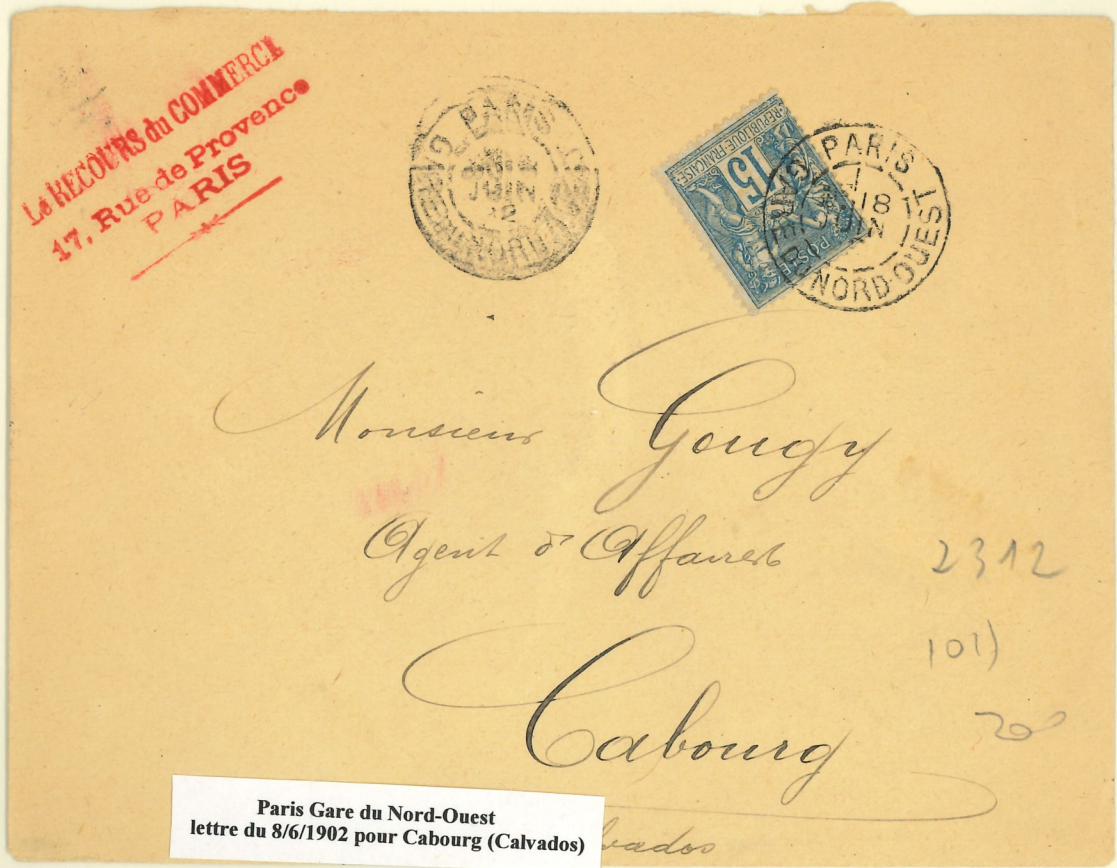 Le RECOURS du COMMERCE
17, Rue de Provence
PARIS
PARIS
JUIN
REPUBLIQUE FRANÇAISE
15
POSTE
PARIS
18
JUIN
GARE DU NORD-OUEST
Monsieur Gougy
Agent d'Affaires
Cabourg
2312
101)
20
Paris Gare du Nord-Ouest
lettre du 8/6/1902 pour Cabourg (Calvados)
vados